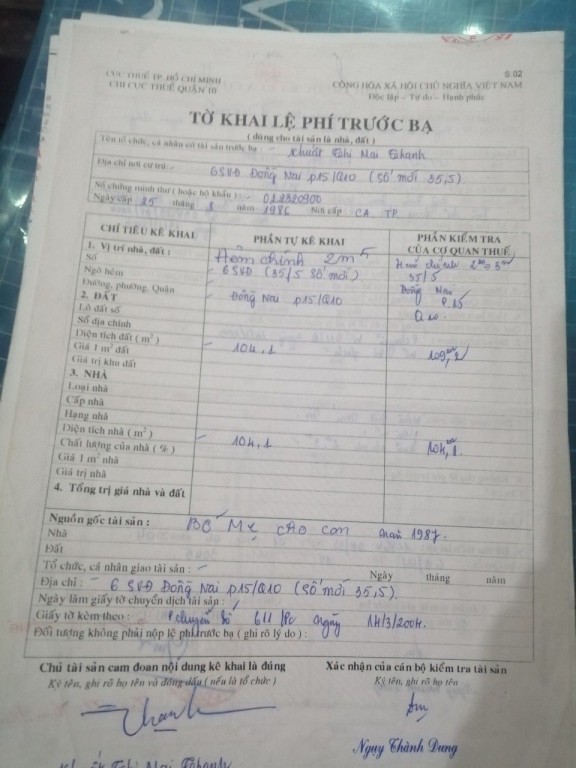 S.02
CỤC THUẾ TP. HỒ CHÍ MINH
CHI CỤC THUẾ QUẬN 10
CỘNG HÒA XÃ HỘI CHỦ NGHĨA VIỆT NAM
Độc lập - Tự do - Hạnh phúc
TỜ KHAI LỆ PHÍ TRƯỚC BẠ
( dùng cho tài sản là nhà, đất )
Tên tổ chức, cá nhân có tài sản trước bạ : - Khuất Thị Mai Khanh
Địa chỉ nơi cư trú : - 6 SVĐ Đồng Nai p15/Q10 (Số mới 35,5)
Số chứng minh thư ( hoặc hộ khẩu ) : - 022320900
Ngày cấp 25 tháng 8 năm 1986 Nơi cấp CA TP
CHỈ TIÊU KÊ KHAI PHẦN TỰ KÊ KHAI PHẦN KIỂM TRA CỦA CƠ QUAN THUẾ
1. Vị trí nhà, đất : Hẻm chính 2m5
Số - 6 SVĐ (35/5 Số mới) 35/5
Ngõ hẻm Đồng Nai
Đường, phường, Quận - Đồng Nai p15/Q10 P.15
2. ĐẤT Q10
Lô đất số
Sổ địa chính
Diện tích đất ( m² ) - 104,1
Giá 1 m² đất
Giá trị khu đất
3. NHÀ
Loại nhà
Cấp nhà
Hạng nhà
Diện tích nhà ( m² ) - 104,1
Chất lượng của nhà ( % )
Giá 1 m² nhà
Giá trị nhà
4. Tổng trị giá nhà và đất
Nguồn gốc tài sản : - BỐ Mẹ cho con năm 1987.
Nhà
Đất
Tổ chức, cá nhân giao tài sản : - Ngày tháng năm
Địa chỉ : - 6 SVĐ Đồng Nai p15/Q10 (Số mới 35,5).
Ngày làm giấy tờ chuyển dịch tài sản :
Giấy tờ kèm theo : - Pchuyển Số 611/PC ngày 14/3/2004.
Đối tượng không phải nộp lệ phí trước bạ ( ghi rõ lý do ) :
Chủ tài sản cam đoan nội dung kê khai là đúng
Ký tên, ghi rõ họ tên và đóng dấu ( nếu là tổ chức )
Xác nhận của cán bộ kiểm tra tài sản
Ký tên, ghi rõ họ tên
Ngụy Thành Dung
Khuất Thị Mai Khanh